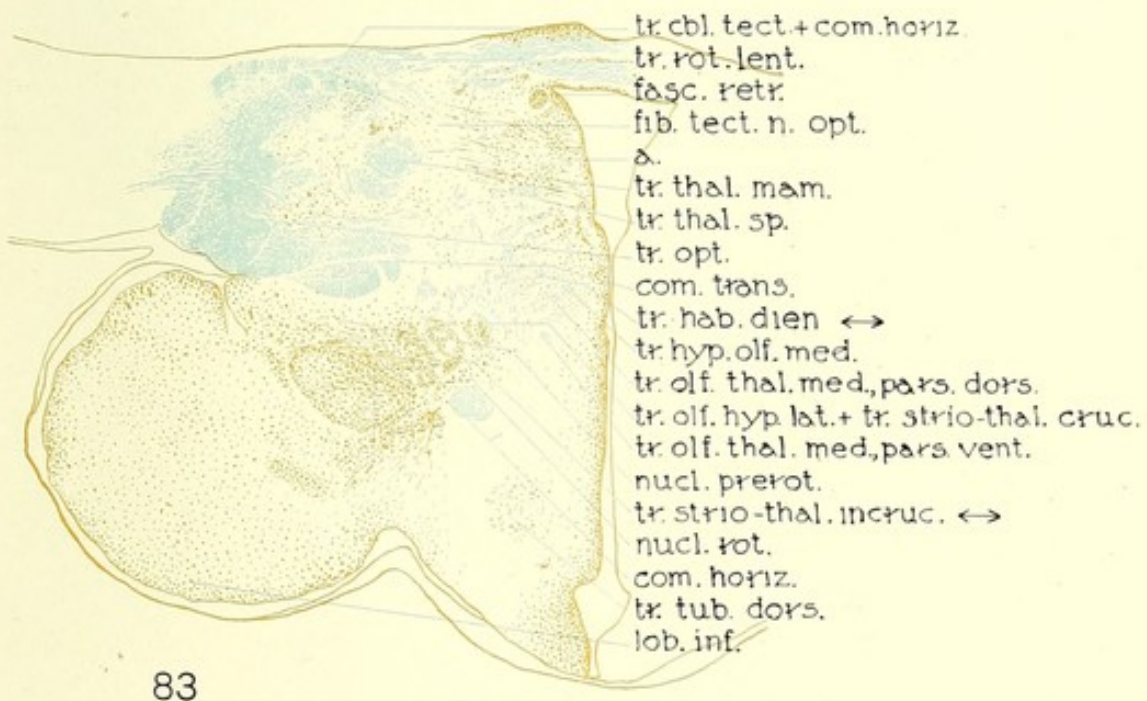 tr. cbl. tect. + com. horiz.
tr. rot. lent.
fasc. retr.
fib. tect. n. opt.
a.
tr. thal. mam.
tr. thal. sp.
tr. opt.
com. trans.
tr. hab. dien ↔
tr. hyp. olf. med.
tr. olf. thal. med., pars. dors.
tr. olf. hyp. lat. + tr. strio-thal. cruc.
tr. olf. thal. med., pars. vent.
nucl. prerot.
tr. strio-thal. incruc. ↔
nucl. rot.
com. horiz.
tr. tub. dors.
lob. inf.
83